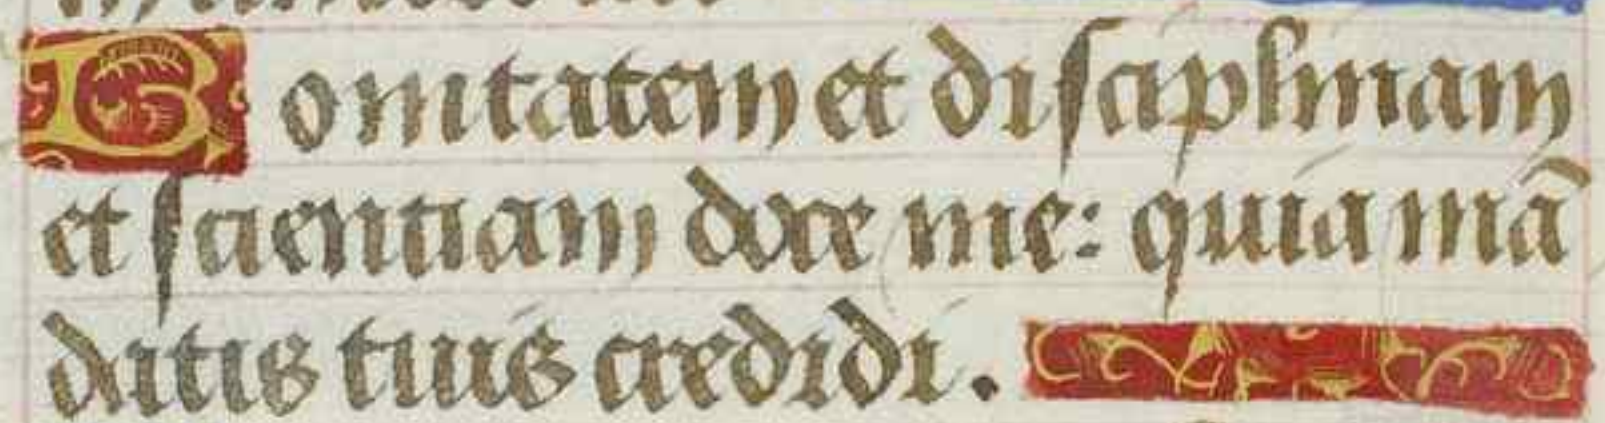 Bonitatem et disciplinam
et scientiam doce me: quia mā
datis tuis credidi.